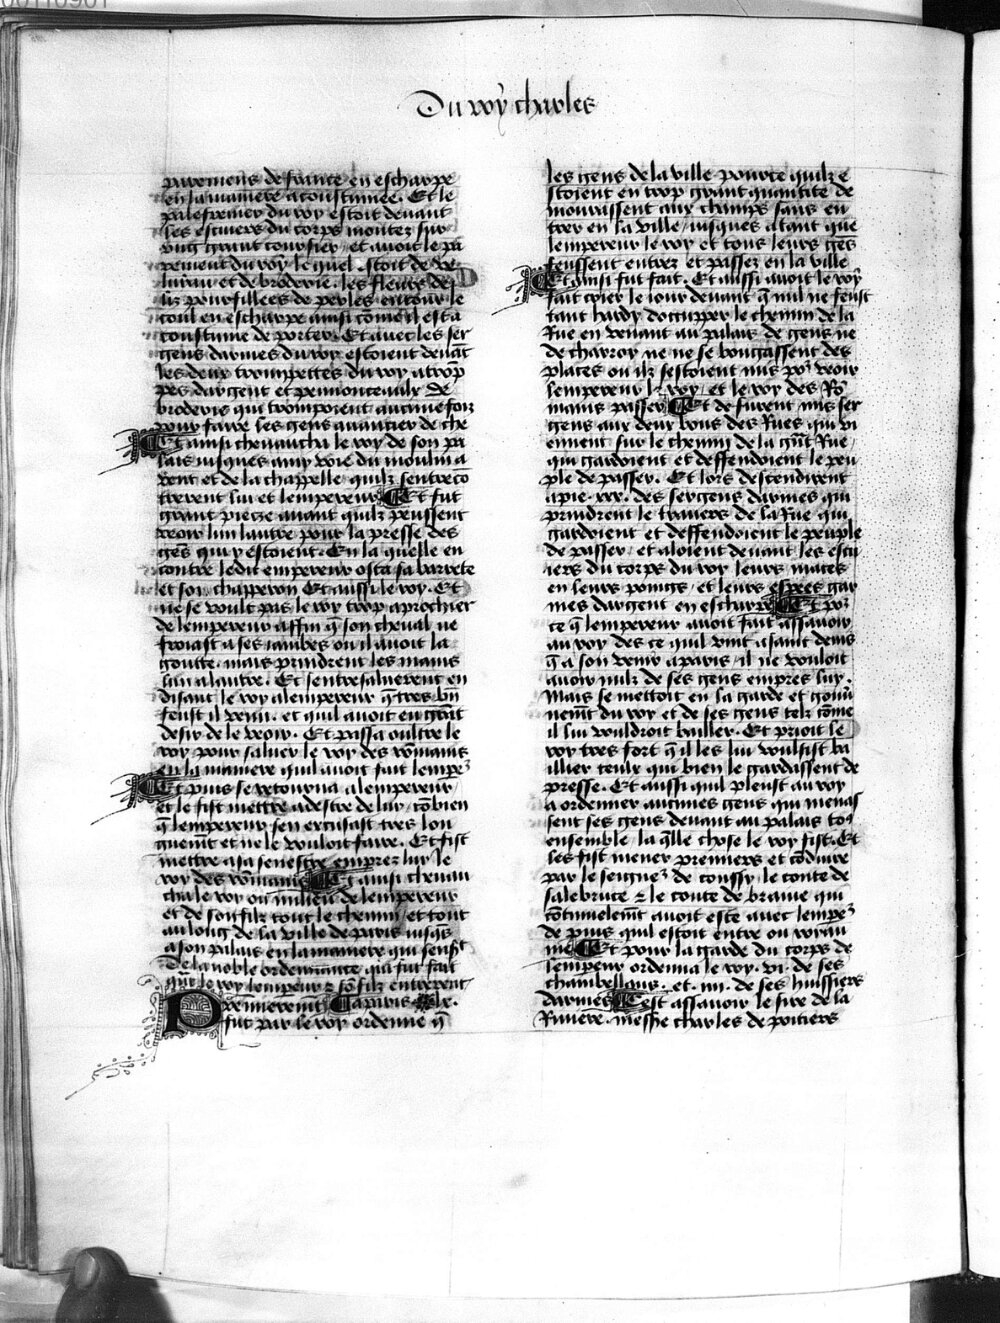 Du roy charles
paremens de france en escharpe
en la maniere acoustumee. Et le
palefrenier du roy estoit deuant
les escuiers du corps montez sur
vng grant coursier et auoit le pa
rement du roy le quel estoit de ve
luiau et de broderie. les fleurs de
liz pourfillees de perles entour le
coul en escharpe ainsi come il est a
coustume de porter. Et auec les ser
gens darmes du roy estoient deuāt
les deux trompettes du roy a trōp
pes dargent et pennonceaulx de
broderie qui trompoient aucune foiz
pour faire les gens auancier de che
Et ainsi cheuaucha le roy de son pa
lais iusques a my voie du moulin a
vent et de la chappelle quilz sentrecō
trerent lui et lempereur Et fut
grant piece auant quilz peussent
veoir lun lautre pour la presse des
gēs qui y estoient. En la quelle en
contre ledit empereur osta sa barrete
et son chaperon Et aussi le roy. Et
ne se voult pas le roy trop aprochier
de lempereur affin q̄ son cheual ne
froiast a ses iambes ou il auoit la
goutte. mais prindrent les mains
lun a lautre. Et sentresaluerent en
disant le roy a lempereur q̄ tres bn̄
feust il venu. et quil auoit eu grāt
desir de le veoir. Et passa oultre le
roy pour saluer le roy des rommains
en la maniere quil auoit fait lempe
Et puis se retourna a lempereur
et le fist mettre a destre de luy. cōbien
q̄ lempereur sen excusast tres lon
guemt et ne le vouloit faire. Et fist
mettre a sa senestre emprez luy le
roy des rommains Et ainsi cheuau
cha le roy ou milieu de lempereur
et de son filz tout le chemin et tout
au long de la ville de paris iusqs
a son palais en la maniere qui senst
De la noble ordennance qui fut fait
quāt le roy lempeur z sō filz entrerent
Premieremt a paris
fut par le roy ordenne q̄
les gens de la ville pource quilz e
stoient en trop grant quantite de
mourassent aux champs sans en
trer en la ville iusques a tant que
lempereur le roy et tous leurs gēs
feussent entrez et passez en la ville
Et ainsi fut fait. Et aussi auoit le roy
fait crier le iour deuant q̄ nul ne feust
tant hardy doccupper le chemin de la
Rue en venant au palais de gens ne
de charroy ne ne se bougassent des
places ou ilz sestoient mis por veoir
lempereur le roy et le roy des Rō
mains passer Et de furent mis ser
gens aux deux bous des Rues qui vi
ennent sur le chemin de la grāt Rue
qui gardoient et deffendoient le peu
ple de passer. Et lors descendirent
a pie. xxx. des sergens darmes qui
prindrent le trauers de la Rue qui
gardoient et deffendoient le peuple
de passer. et aloient deuant les escu
iers du corps du roy leurs maces
en leurs poings et leurs espees gar
nies dargent en escharpe Et por
ce q̄ lempereur auoit fait assauoir
au roy des ce quil vint a saint denis
q̄ a son venir a paris il ne vouloit
auoir nulz de ses gens empres luy.
Mais se mettoit en la garde et gouū
nemt du roy et de ses gens telz cōme
il lui vouldroit bailler. Et prioit le
roy tres fort q̄ il les lui voulsist ba
illier teulx qui bien le gardassent de
presse. Et aussi quil pleust au roy
a ordenner aucunes gens qui menas
sent ses gens deuant au palais to9
ensemble. la q̄lle chose le roy fist. Et
les fist mener premiers et cōduire
par le seigneur de coussy. le conte de
salebruce z le conte de braine qui
cōtinuelemt auoit este auec lempe
de puis quil estoit entre ou royau
me Et pour la garde du corps de
lempeur ordenna le roy. vi. de ses
chambellans. et. iiii. de ses huissiers
darmes Cest assauoir le sire de la
Riuiere. messire charles de poitiers